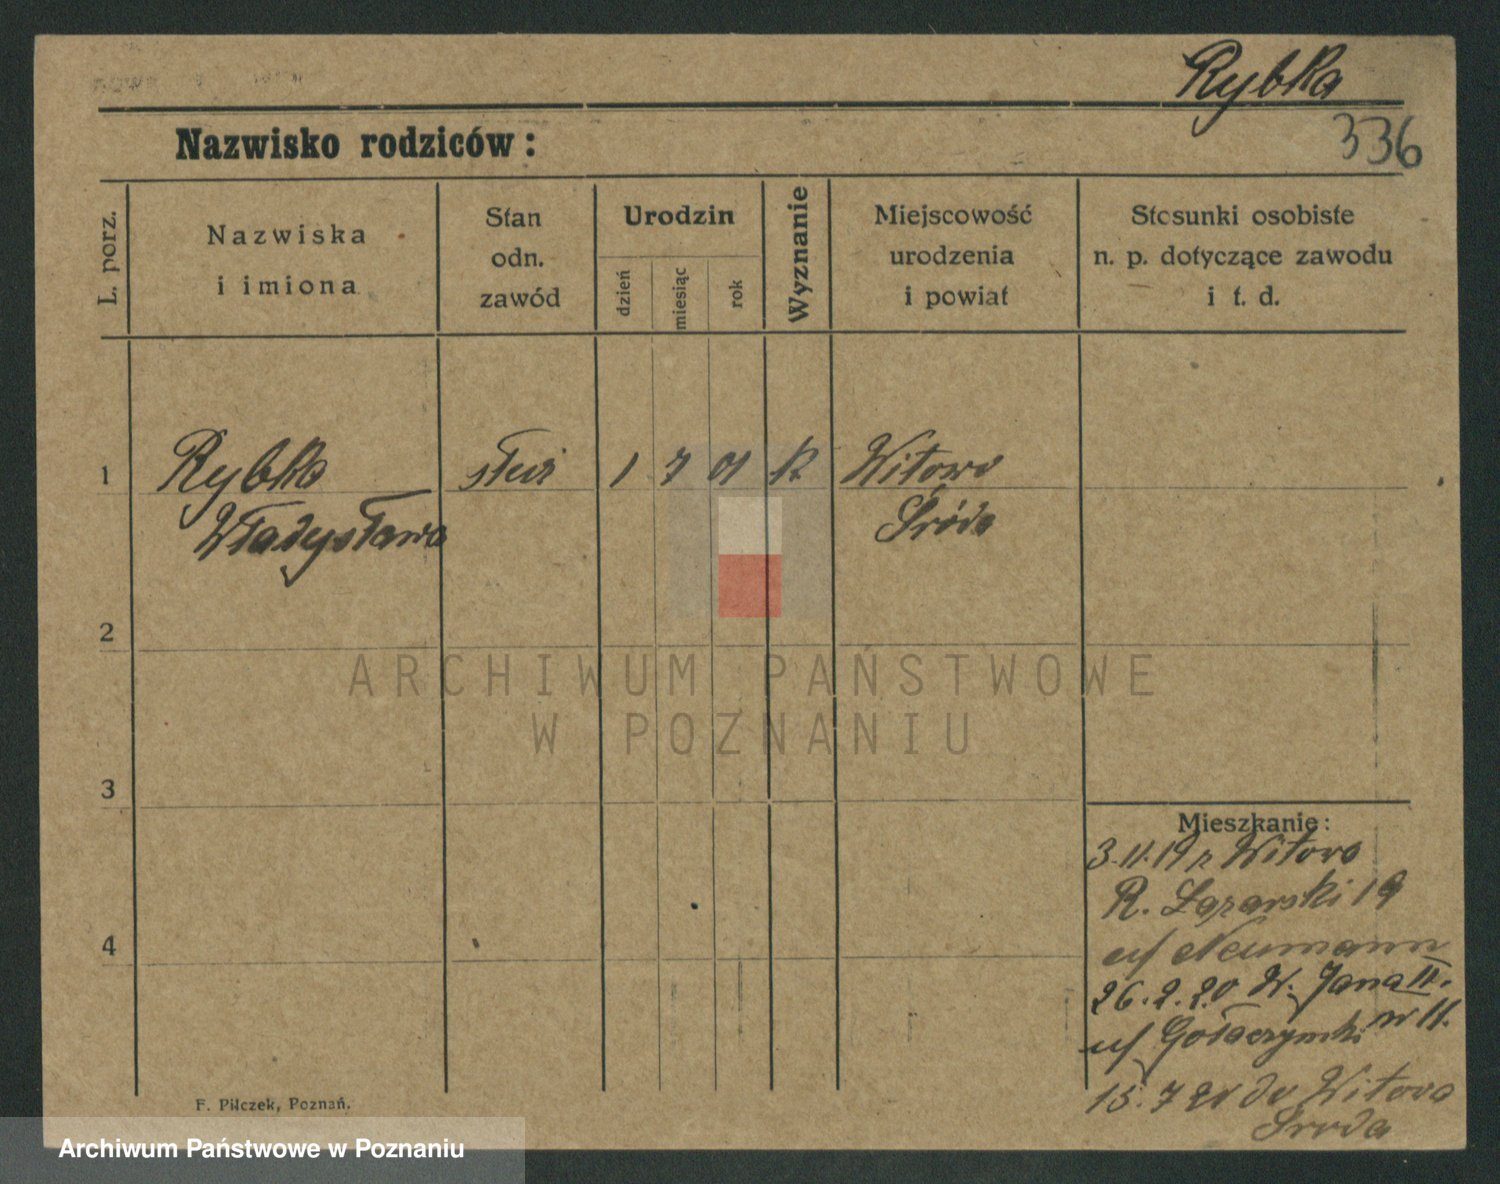 Rybka
336
Nazwisko rodziców:
L. porz.
Nazwiska
i imiona
Stan
odn.
zawód
Urodzin
dzień
miesiąc
rok
Wyznanie
Miejscowość
urodzenia
i powiat
Stosunki osobiste
n. p. dotyczące zawodu
i t. d.
1
Rybka
Władysława
służ
1
7
01
k
Witowo
Środa
2
ARCHIWUM PAŃSTWOWE
W POZNANIU
3
4
Mieszkanie:
3.11.19 z Witowo
R. Łazarski 19
u/ Neumann
26.2.20 W. Jana III.
nr 11.
u/
15.7 20 do Witowo
Sroda
F. Pilczek, Poznań.
Archiwum Państwowe w Poznaniu